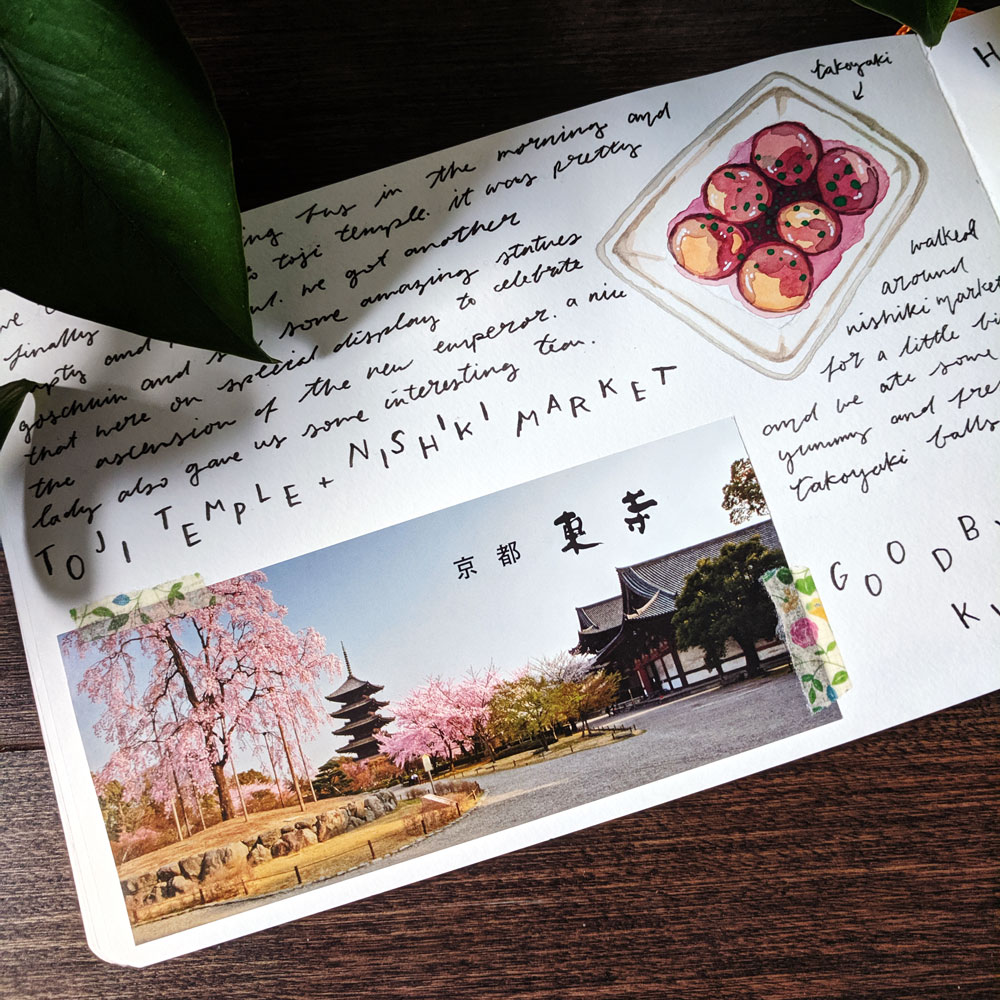 bus in the morning and
toji temple. it was pretty
we got another
finally
and some amazing statues
goschuin and
that were on special display to celebrate
the ascension of the new emperor. a nice
lady also gave us some interesting tea.
TOJI TEMPLE + NISHIKI MARKET
takoyaki
walked
around
nishiki market
for a little
and we ate some
yummy and
takoyaki balls
京都 東寺
GOOD
H